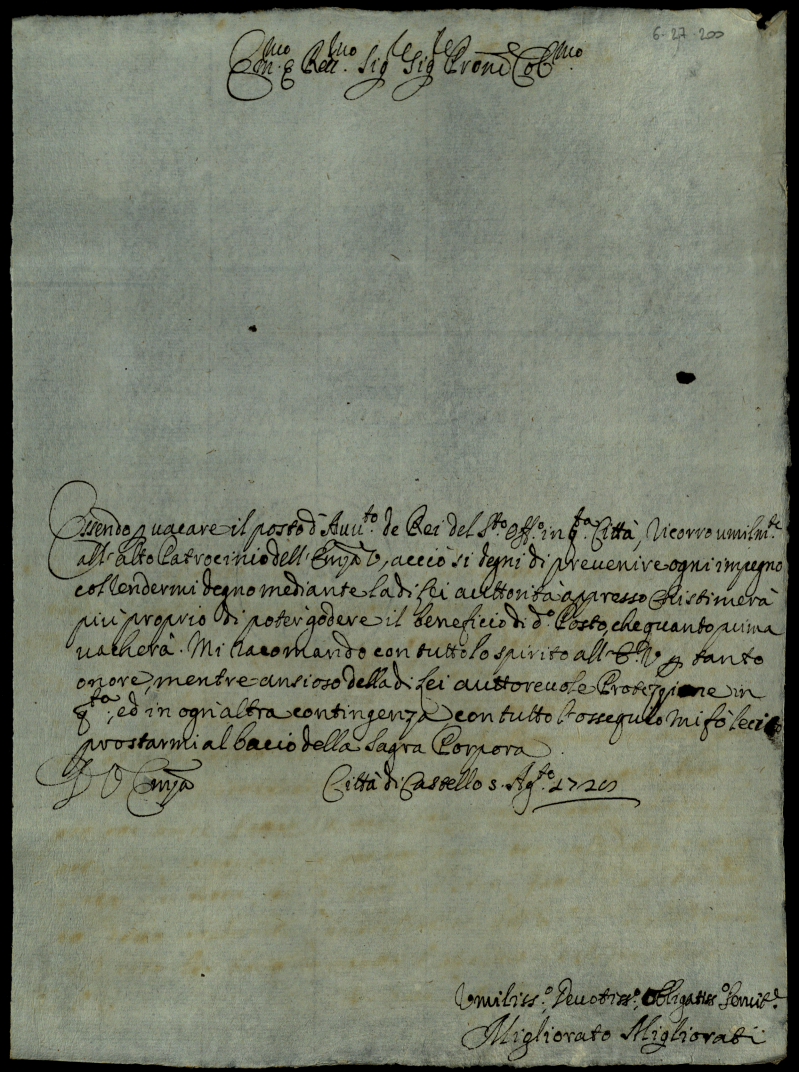 6-27-200
Em.mo e Reu.mo Sig.re Sig.re Prone Col.mo
Essendo p uacare il posto d'Auu.to de Rei del S.to Off.o in q.ta Città, ricorro umilm.te
all'alto Patrocinio dell'Emza V, acciò si degni di prevenire ogni impegno
col rendermi degno mediante la di Lei auttorità appresso chi stimerà
più proprio di poter godere il beneficio di d.o Posto, che quanto prima
uacherà. Mi racomando con tutto lo spirito all'E. V. p tanto
onore, mentre ansioso della di Lei auttoreuole Protezzione in
q.to, ed in ogn'altra contingenza, con tutto l'ossequio mi fò lecito
prostarmi al bacio della Sagra Porpora.
D V Emza Città di Castello 5. Ag.to 1720
Umiliss.o, Deuotiss.o, Obligatiss.o Seruit.e
Migliorato Migliorati